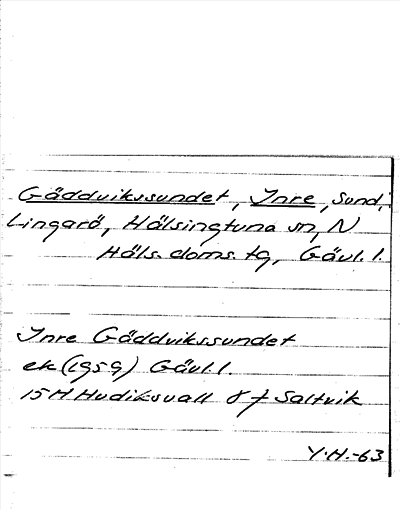 Gäddvikssundet, Inre, sund,
Lingarö, Hälsingtuna sn, N
Häls. doms. tg, Gävl. l.
Inre Gäddvikssundet
ek (1959) Gävl. l.
15H Hudiksvall 8 f Saltvik
Y.H.-63